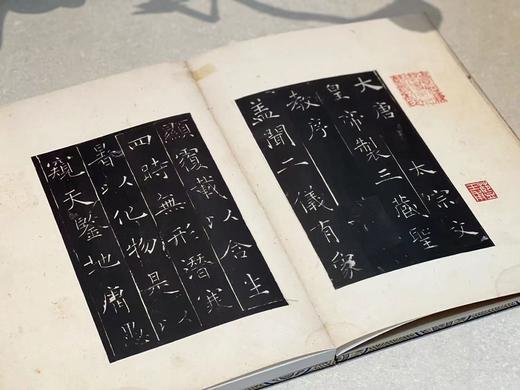 大唐太宗文
皇帝製三藏聖
教序
蓋聞二儀有象
顯覆載以含生
四時無形潛寒
暑以化物是以
窺天鑒地庸愚